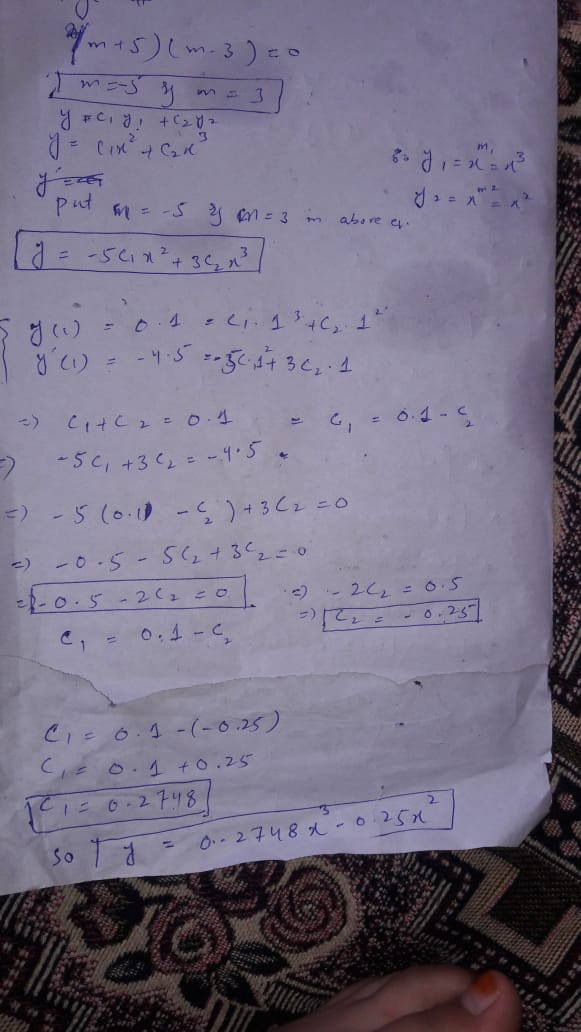 (m+5)(m-3)=0
m=-5 & m=3
y=c₁y₁+c₂y₂
y=c₁x²+c₂x³
∴ y₁=x^m₁=x³
y₂=x^m₂=x²
put m=-5 & m=3 in above eq.
y=-5c₁x²+3c₂x³
y(1)=0.1=c₁.1³+c₂.1²
y'(1)=-4.5=-5c₁.1²+3c₂.1
=> c₁+c₂=0.1 = c₁=0.1-c₂
=> -5c₁+3c₂=-4.5
=> -5(0.1-c₂)+3c₂=0
=> -0.5-5c₂+3c₂=0
=> -0.5-2c₂=0 => -2c₂=0.5
c₁=0.1-c₂ => c₂=-0.25
c₁=0.1-(-0.25)
c₁=0.1+0.25
c₁=0.2748
so y=0.2748x³-0.25x²